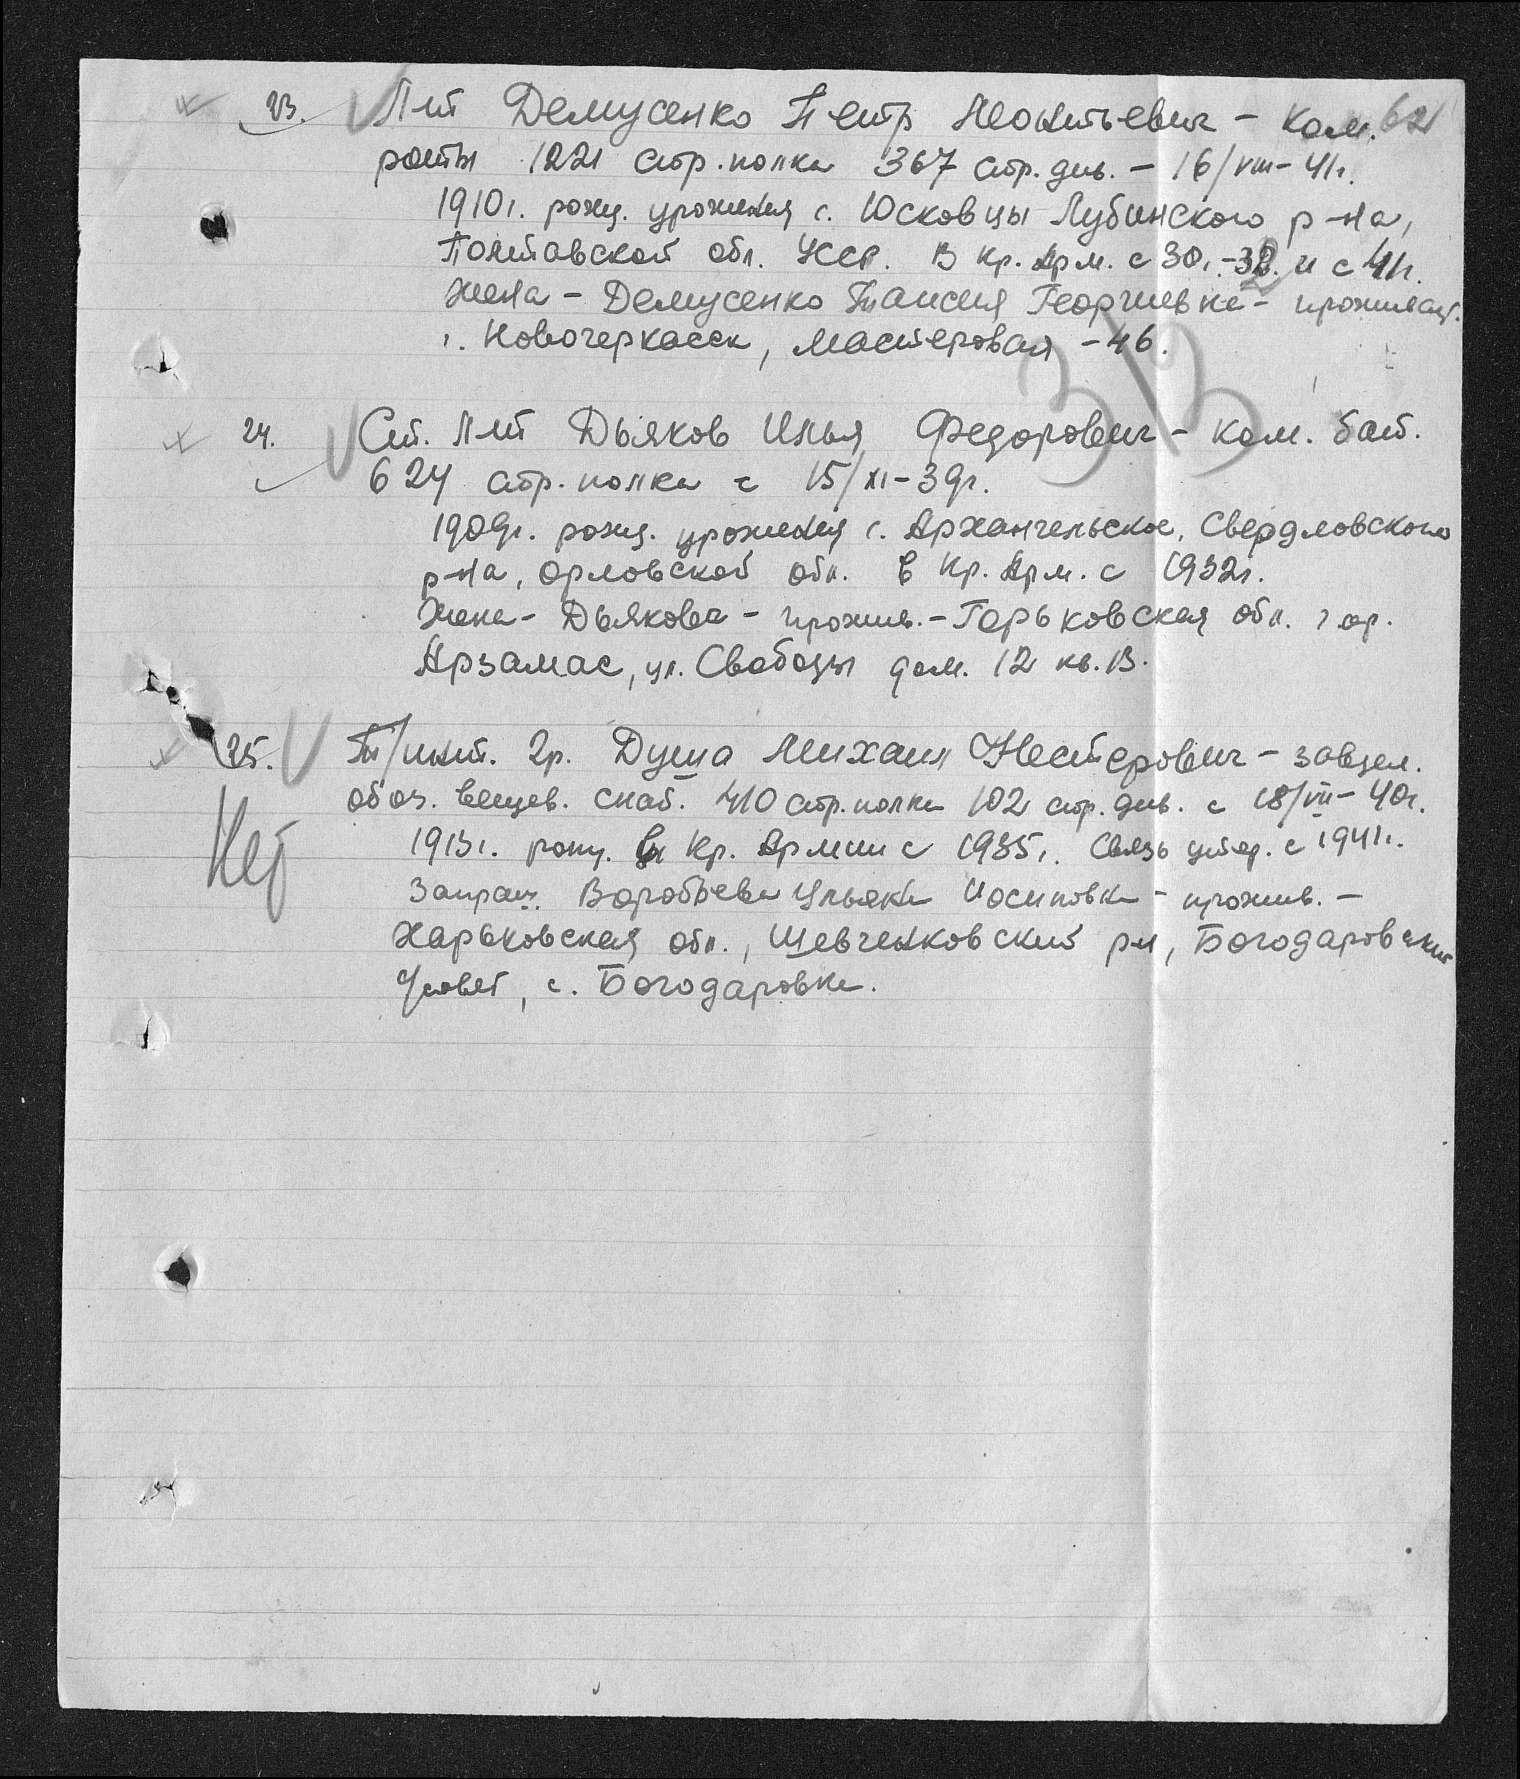 23. Л-т Демусенко Петр Леонтьевич - ком. 62
роты 1221 стр. полка 367 стр. див. - 16/VIII-41г.
1910г. рожд. уроженец с. Юсковцы Лубинского р-на,
Полтавской обл. УССР. В Кр. Арм. с 30г.-32 и с 41г.
Жена - Демусенко Таисия Георгиевна - проживает.
г. Новочеркасск, Мастеровая - 46.
24. Ст. Л-т Дьяков Илья Федорович - ком. бат.
624 стр. полка с 15/XI-39г.
1909г. рожд. уроженец с. Архангельское, Свердловского
р-на, Орловской обл. в Кр. Арм. с 1932г.
Жена - Дьякова - прожив. - Горьковская обл. гор.
Арзамас, ул. Свободы дом. 12 кв. 13.
25. Т/инт. 2р. Душа Михаил Нестерович - завдел.
обоз. вещев. снаб. 410 стр. полка 102 стр. див. с 18/VII-40г.
Нет
1913г. рожд. в Кр. Армии с 1935г. Связь утер. с 1941г.
Запраш. Воробьева Ульяна Иосиповна - прожив. -
Харьковская обл., Шевченковский р-н, Богодаровский
с/совет, с. Богодаровка.